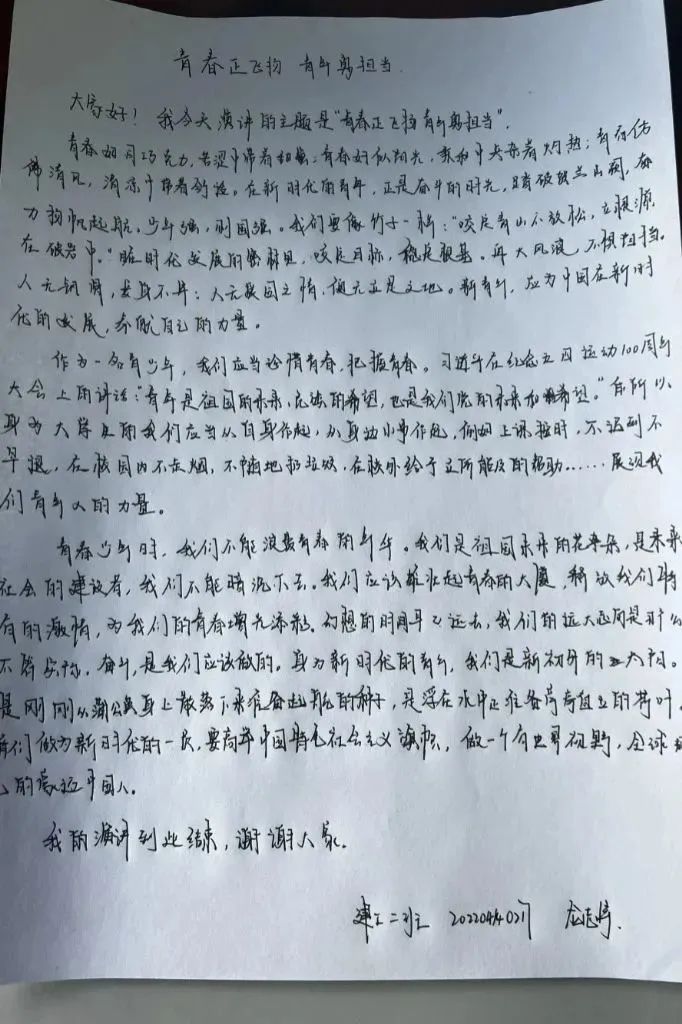 青春正飞扬 青年勇担当
大家好！我今天演讲的主题是“青春正飞扬青年勇担当”.
青春如同巧克力，苦涩中带着甜蜜；青春好似阳光，柔和中夹杂着灼热；青春仿
佛清风，清凉中带着舒适。在新时代的青年，正是奋斗的时光，踏破贺兰山阙，奋
力扬帆起航。少年强，则国强。我们要像竹子一样：“咬定青山不放松，立根源
在破岩中。”随时代发展的需，咬定目标，稳定根基。再大风浪，不惧担当。
人无钢骨，安身不牢；人无报国之情，何立天地。新青年，应为中国在新时
代的发展，奉献自己的力量。
作为一名青少年，我们应当珍惜青春，把握青春。习近平在纪念五四运动100周年
大会上的讲话：“青年是祖国的未来、民族的希望，也是我们党的未来和希望。”所以
身为大学生的我们应当从自身作起，从身边小事作起，例如上课按时，不迟到不
早退，在校园内不点烟，不随地扔垃圾，在校外给予力所能及的帮助……展现我
们青年人的力量。
青春少年时，我们不能浪费青春的年华。我们是祖国未来的花朵，是未来
社会的建设者，我们不能暗沉下去。我们应该撑起青春的大厦，释放我们特
有的激情，为我们的青春增光添彩。幻想的时间早以远去，我们的远大志向是那么
不。奋斗，是我们应该做的。身为新时代的青年，我们是新初升的太阳。
是刚刚从蒲公英身上散落下来准备起飞的种子，是浮在水中正准备的荷叶。
我们做为新时代的一员，要高举中国特色社会主义旗帜，做一个有世界视野，全球
的中国人。
我的演讲到此结束，谢谢大家。
建工二班 龙志婷.